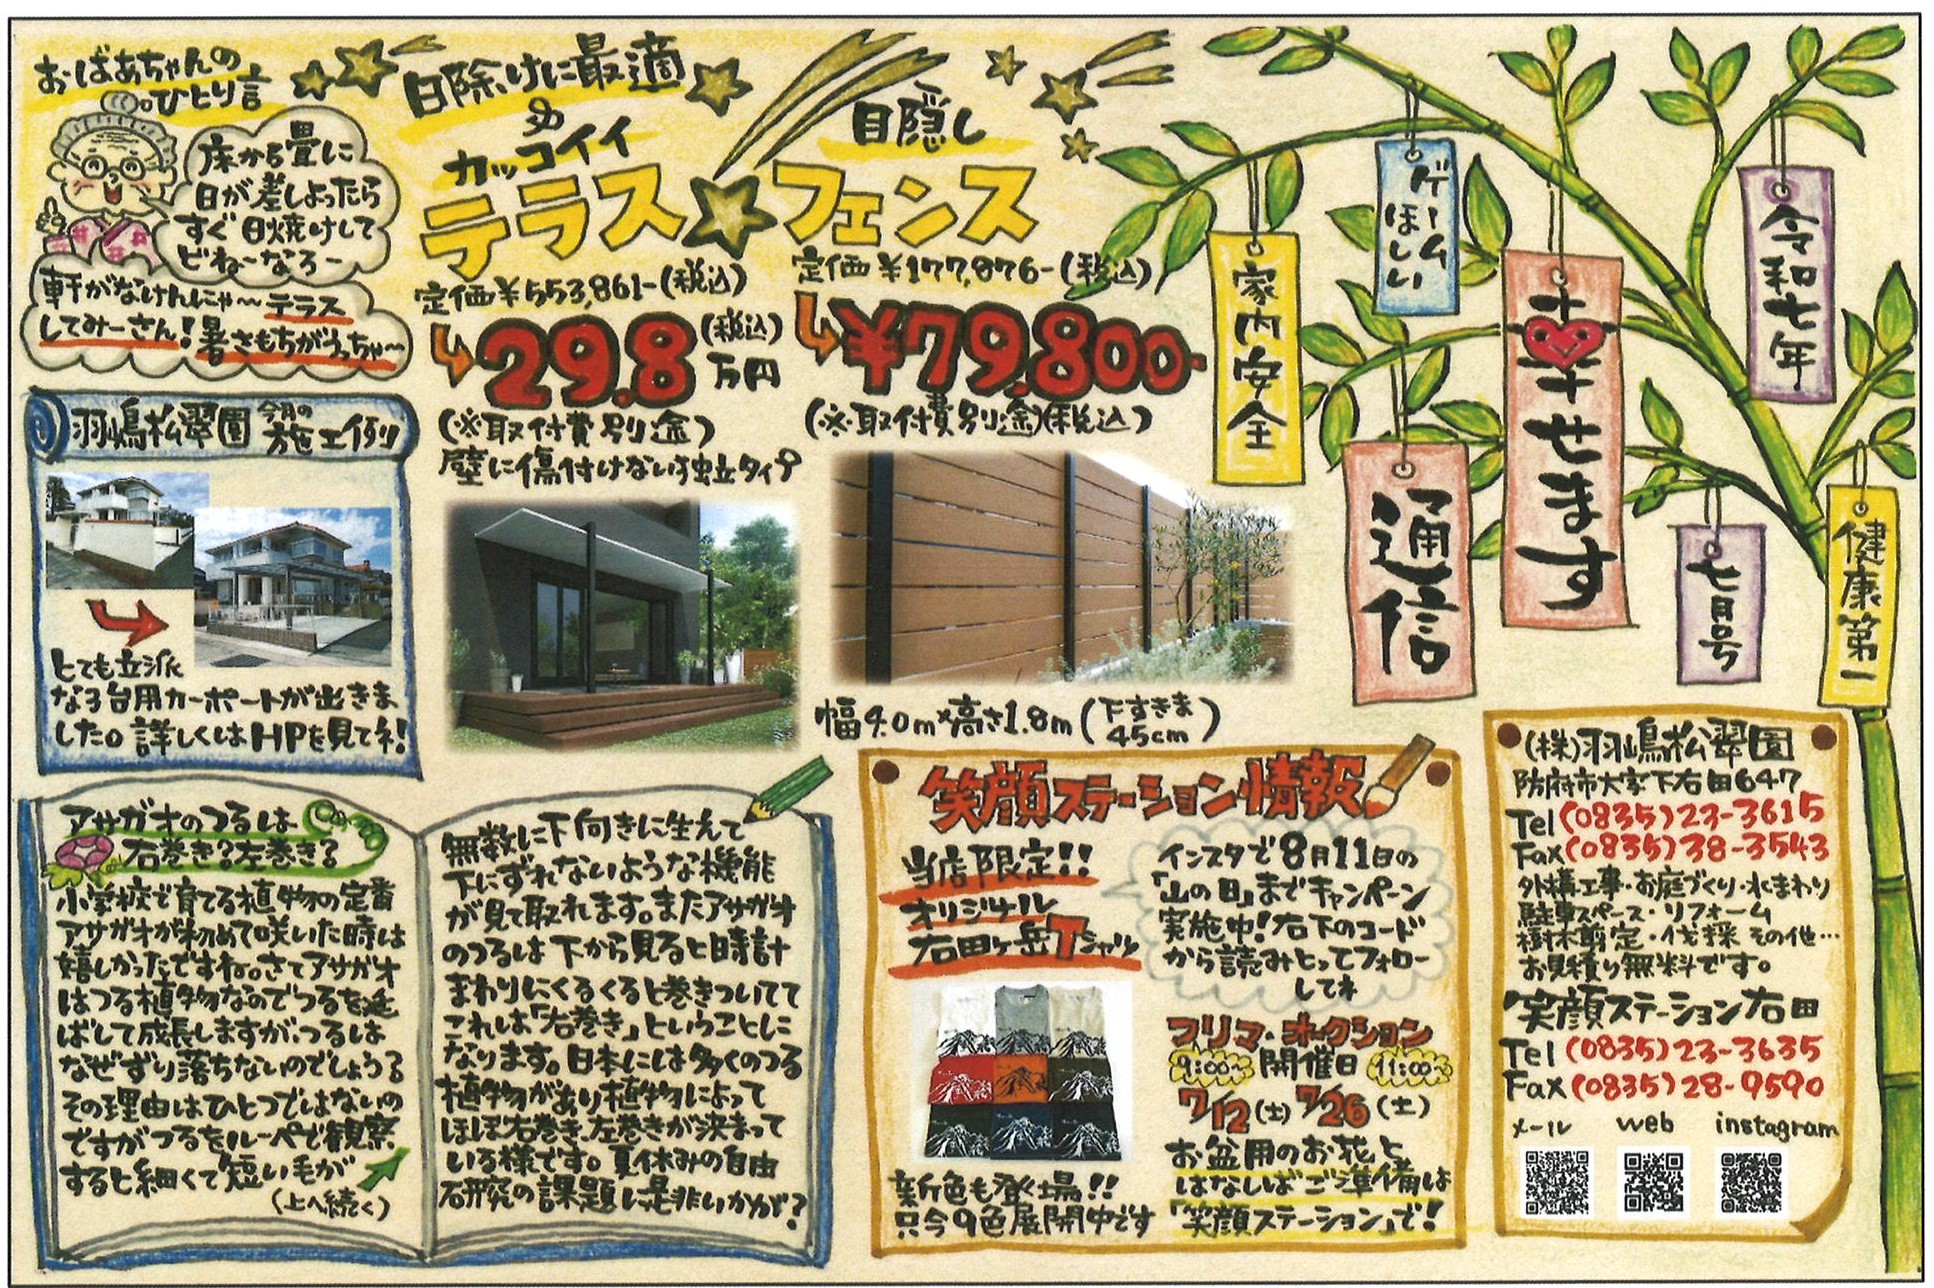 おばあちゃんの
ひとり言
床から畳に
日が差しよったら
すぐ日焼けして
どねーなろー
軒がなけんにゃ〜テラス
してみーさん！暑さもちがうっちゃ〜
日除けに最適
カッコイイ
テラス
定価￥553,861-(税込)
29.8万円(税込)
(※取付費別途)
目隠し
フェンス
定価￥177,876-(税込)
￥79,800-
(※取付費別途)(税込)
幅4.0m×高さ1.8m(下すきま45cm)
家内安全
ゲームほしい
幸せます
通信
令和七年
七月号
健康第一
羽嶋松翠園 今月の施工例
とても立派
な3台用カーポートが出きま
した。詳しくはHPを見てネ！
アサガオのつるは
右巻き？左巻き？
小学校で育てる植物の定番
アサガオが初めて咲いた時は
嬉しかったですね。さてアサガオ
はつる植物なのでつるを延
ばして成長しますが、つるは
なぜずり落ちないのでしょうる
その理由はひとつではないの
ですがつるをルーペで観察
すると細くて短い毛が
(上へ続く)
無数に下向きに生えて
下にずれないような機能
が見て取れます。またアサガオ
のつるは下から見ると時計
まわりにくるくると巻きついてて
これは「右巻き」ということに
なります。日本には多くのつる
植物があり植物によって
ほぼ右巻き、左巻きが決まって
いる様です。夏休みの自由
研究の課題に是非いかが？
笑顔ステーション情報
当店限定!!
オリジナル
右田ヶ岳Tシャツ
新色も登場!!
只今9色展開中です
インスタで8月11日の
「山の日」までキャンペーン
実施中！右下のコード
から読みとってフォロー
してネ
フリマ・オークション
9:00〜 開催日 11:00〜
7/12(土) 7/26(土)
お盆用のお花と
はなしばご準備は
「笑顔ステーション」で！
(株)羽嶋松翠園
防府市大字下右田647
Tel(0835)23-3615
Fax(0835)38-3543
外構工事・お庭づくり・水まわり
駐車スペース・リフォーム
樹木剪定・伐採 その他…
お見積り無料です。
笑顔ステーション右田
Tel(0835)23-3635
Fax(0835)28-9590
メール web instagram